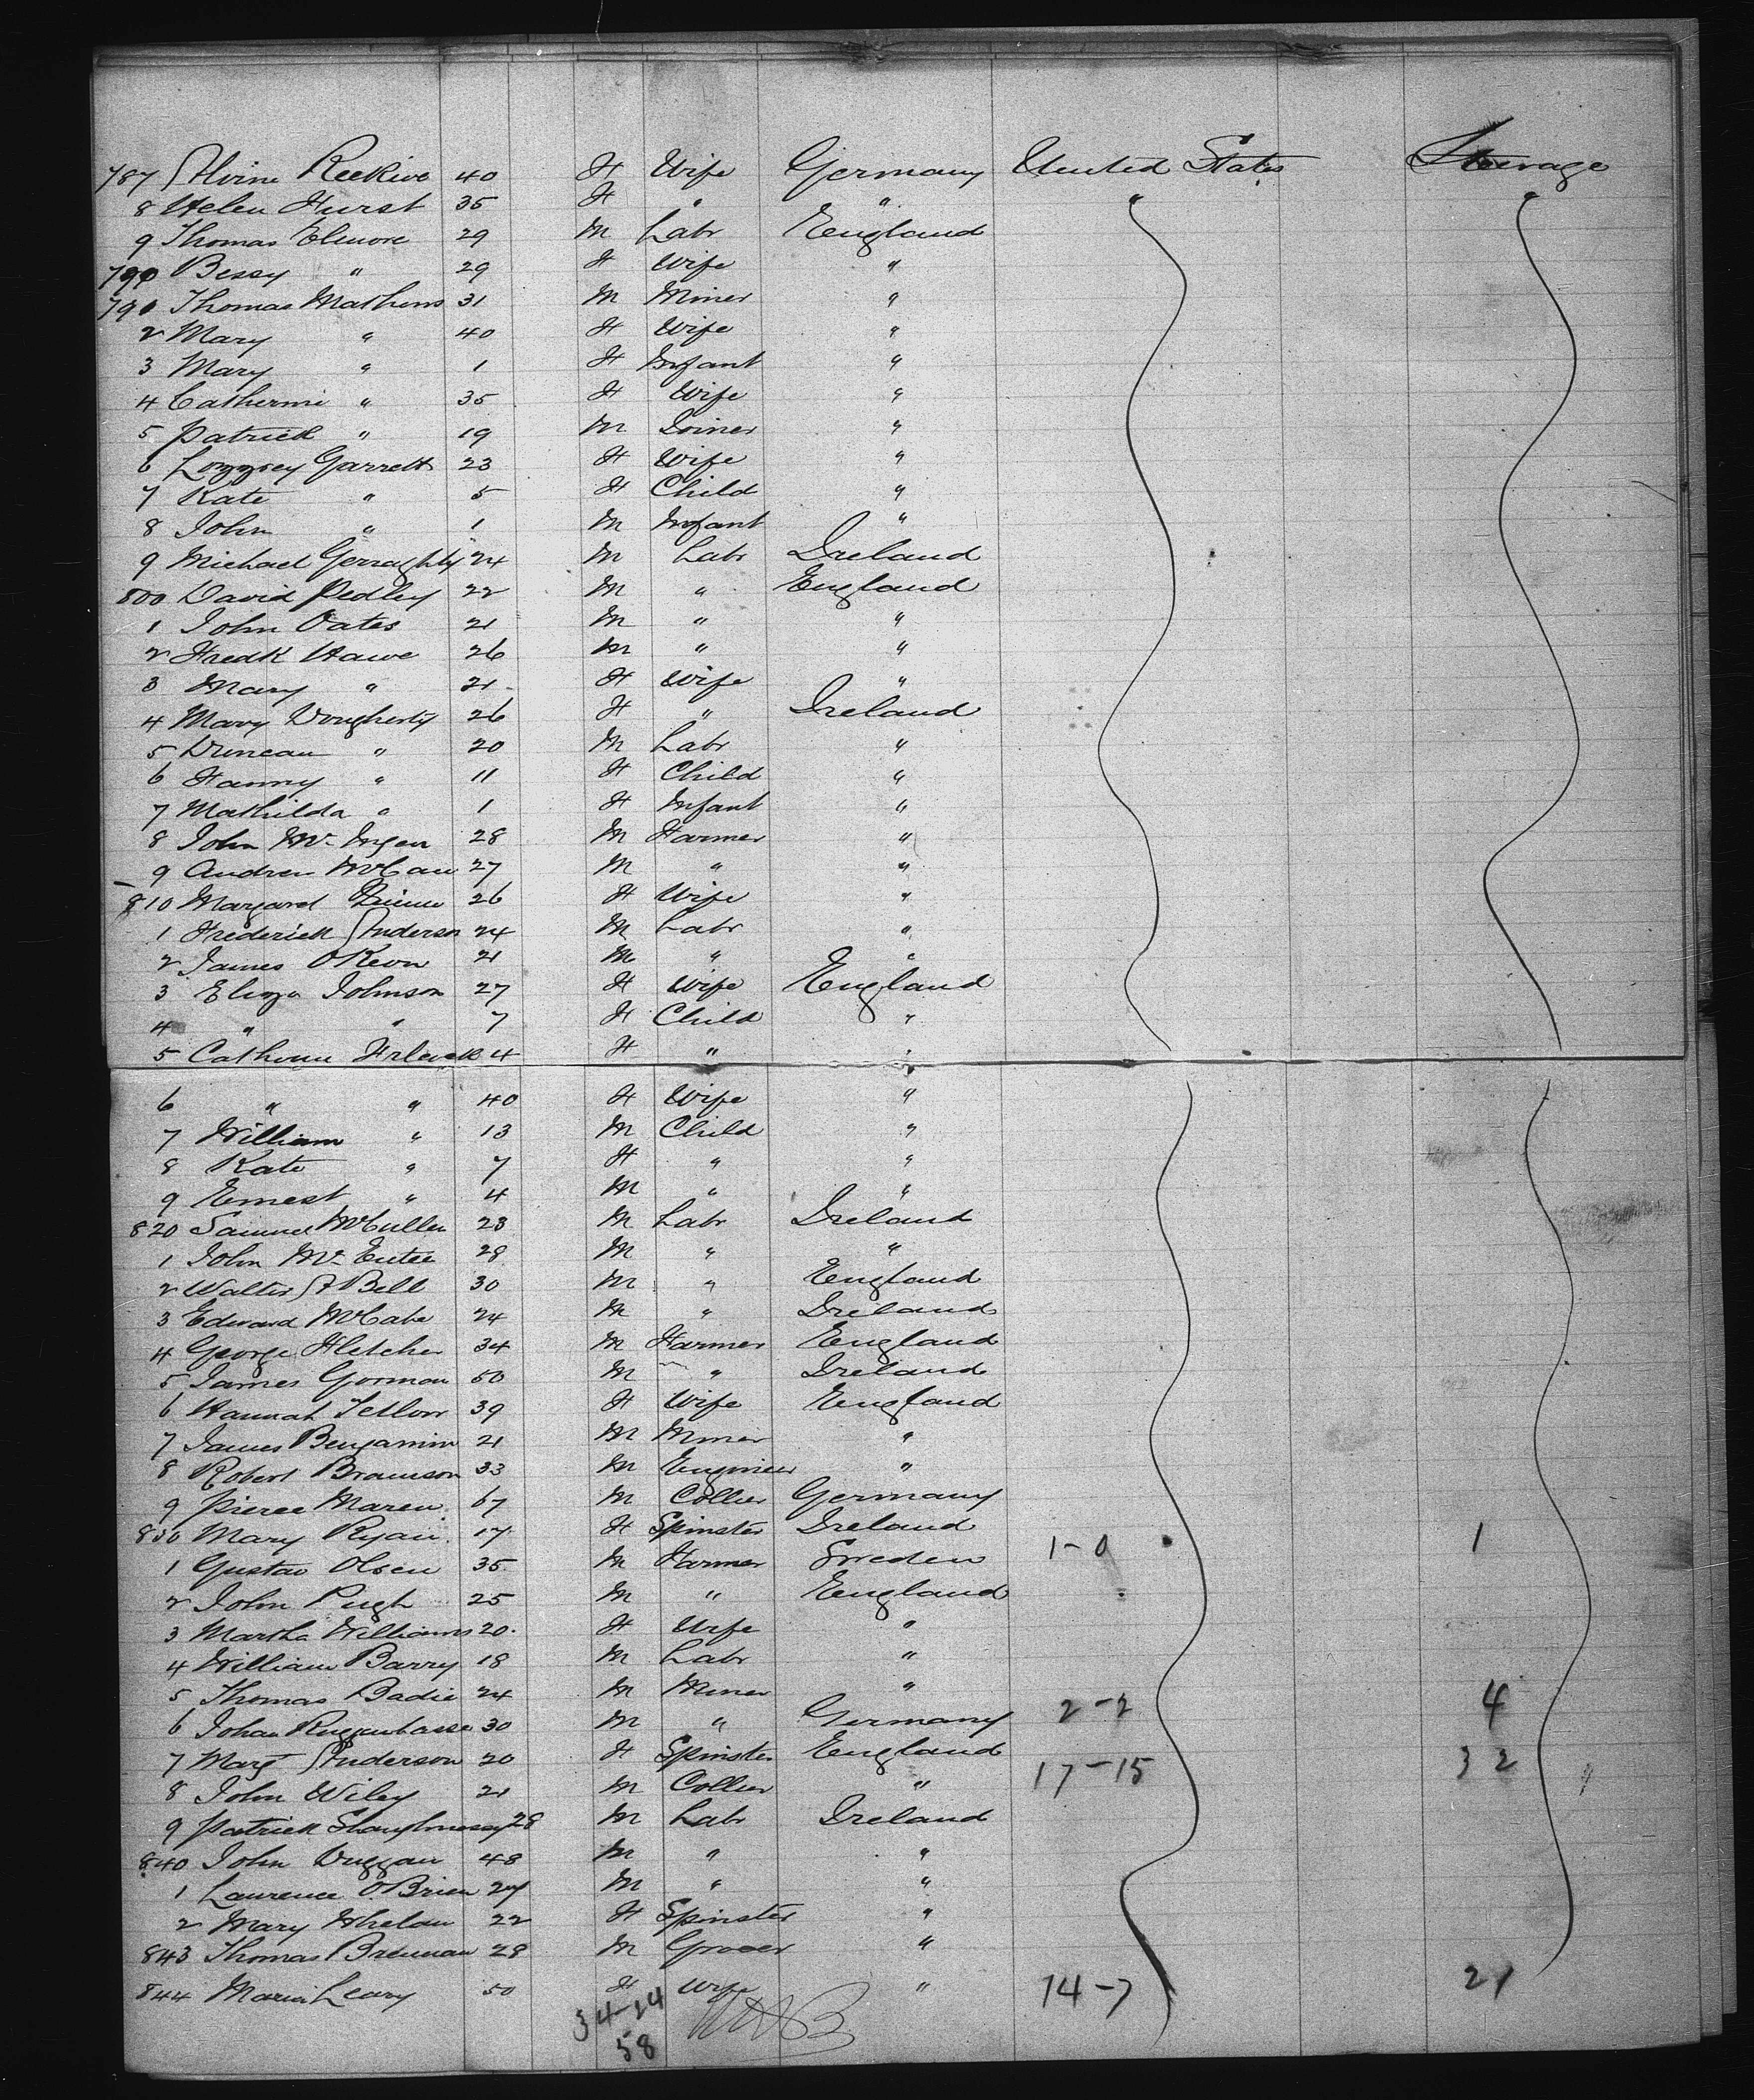 787 Alvine Reekive 40 F Wife Germany United States Steerage
8 Helen Hurst 35 F " " " "
9 Thomas Elmore 29 M Labr England
790 Bessy " 29 F Wife "
791 Thomas Mathews 31 M Miner "
2 Mary " 40 F Wife "
3 Mary " 1 F Infant "
4 Catherine " 35 F Wife "
5 Patrick " 19 M Joiner "
6 Garrett 23 F Wife "
7 Kate " 5 F Child "
8 John " 1 M Infant "
9 Michael Gerraghty 24 M Labr Ireland
800 David Pedley 22 M " England
1 John Oates 21 M " "
2 Fredk Hawe 26 M " "
3 Mary " 21 F Wife "
4 Mary Dougherty 26 F " Ireland
5 Duncan " 20 M Labr "
6 Fanny " 11 F Child "
7 Mathilda " 1 F Infant "
8 John 28 M Farmer "
9 Andrew McCan 27 M " "
810 Margaret 26 F Wife "
1 Frederick Anderson 24 M Labr "
2 James OKeon 21 M " "
3 Eliza Johnson 27 F Wife England
4 " " 7 F Child "
5 4 F " "
6 " " 40 F Wife "
7 William " 13 M Child "
8 Kate " 7 F " "
9 Ernest " 4 M " "
820 Samuel McCullen 23 M Labr Ireland
1 John Mc Entee 28 M " "
2 Walter A Bell 30 M " England
3 Edward McCabe 24 M " Ireland
4 George Fletcher 34 M Farmer England
5 James Gorman 50 M " Ireland
6 Hannah Tetlow 39 F Wife England
7 James Benjamin 21 M Miner "
8 Robert Bramson 33 M Engineer "
9 Pierce Maren 67 M Collier Germany
830 Mary Ryan 17 F Spinster Ireland
1 Gustav Olsen 35 M Farmer Sweden 1-0 1
2 John Pugh 25 M " England
3 Martha Williams 20 F Wife "
4 William Barry 18 M Labr "
5 Thomas Badie 24 M Miner "
6 Johan 30 M " Germany 2-2 4
7 Margt Anderson 20 F Spinster England
8 John Wiley 21 M Collier " 17-15 32
9 Patrick Shaughnessy 28 M Labr Ireland
840 John Duggan 48 M " "
1 Laurence O.Brien 27 M " "
2 Mary Whelan 22 F Spinster "
843 Thomas Brennan 28 M Grocer "
844 Maria Leary 50 F Wife " 14-7 21
34-24
58